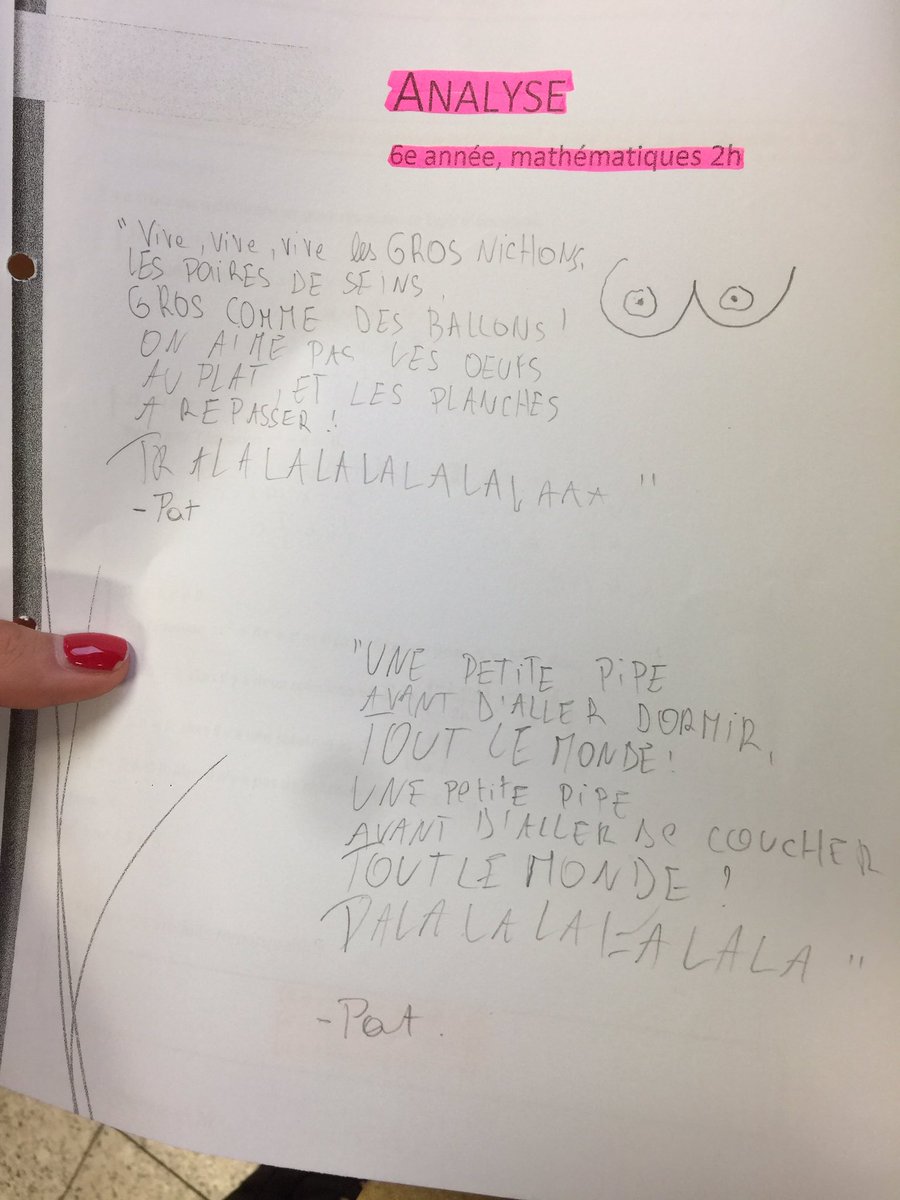 ANALYSE
6e année, mathématiques 2h
"Vive, vive, vive les GROS NICHONS,
LES PAIRES DE SEINS,
GROS COMME DES BALLONS!
ON AIME PAS LES OEUFS
AU PLAT, ET LES PLANCHES
A REPASSER!!
TRALALALALALALALAAA"
-Pat
"UNE PETITE PIPE
AVANT D'ALLER DORMIR,
TOUT LE MONDE!
UNE petite PIPE
AVANT D'ALLER SE COUCHER
TOUT LE MONDE!
DALALALALALALA"
-Pat.